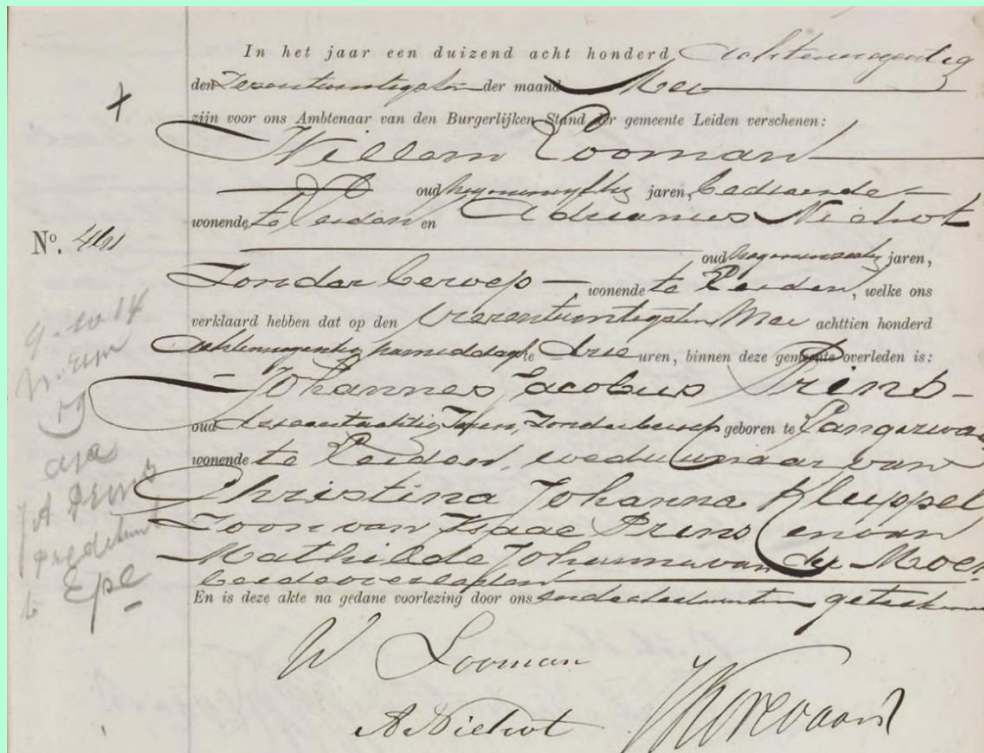 In het jaar een duizend acht honderd achtennegentig
den Zevenentwintigsten der maand Mei
zijn voor ons Ambtenaar van den Burgerlijken Stand der gemeente Leiden verschenen:
Willem Looman
oud jaren, bediende
wonende te Leiden en Adrianus Niehot
Nº.
oud jaren,
Zonder beroep wonende te Leiden, welke ons
verklaard hebben dat op den Mei achttien honderd
achtennegentig namiddag te drie uren, binnen deze gemeente overleden is:
Johannes Jacobus Prins
oud Jaren, Zonder beroep geboren te
wonende te Leiden, weduwnaar van
Christina Johanna Kleppel
Zoon van Isaac Prins en van
Mathilde Johanna van der
beide overleden
En is deze akte na gedane voorlezing door ons geteekend
W Looman
A Niehot
Epe